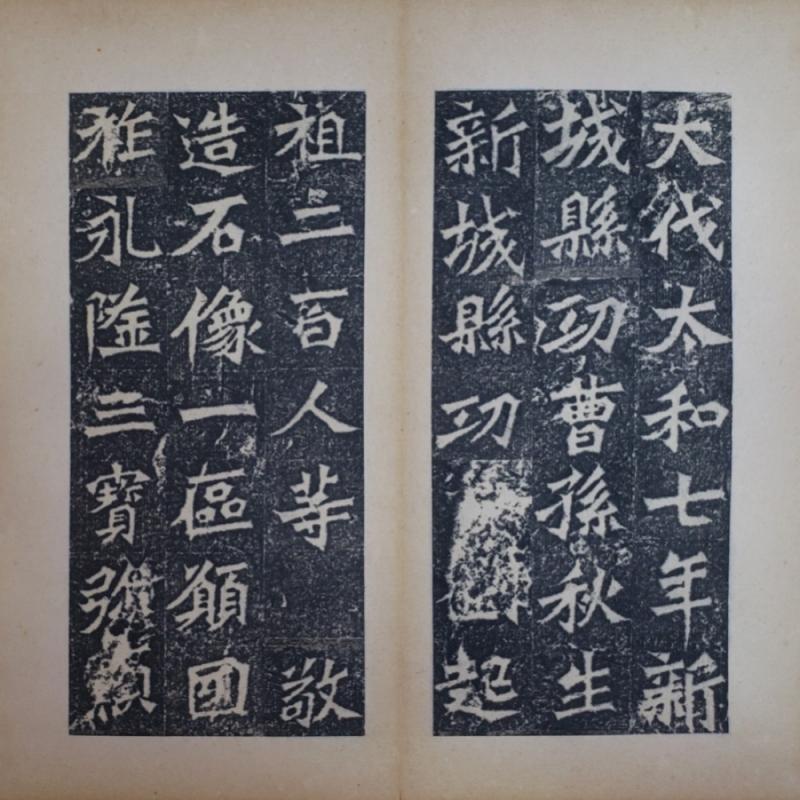 大代太和七年新
城縣功曹孫秋生
新城縣功起
祖二百人等敬
造石像一區願國
祚永隆三寶彌顯